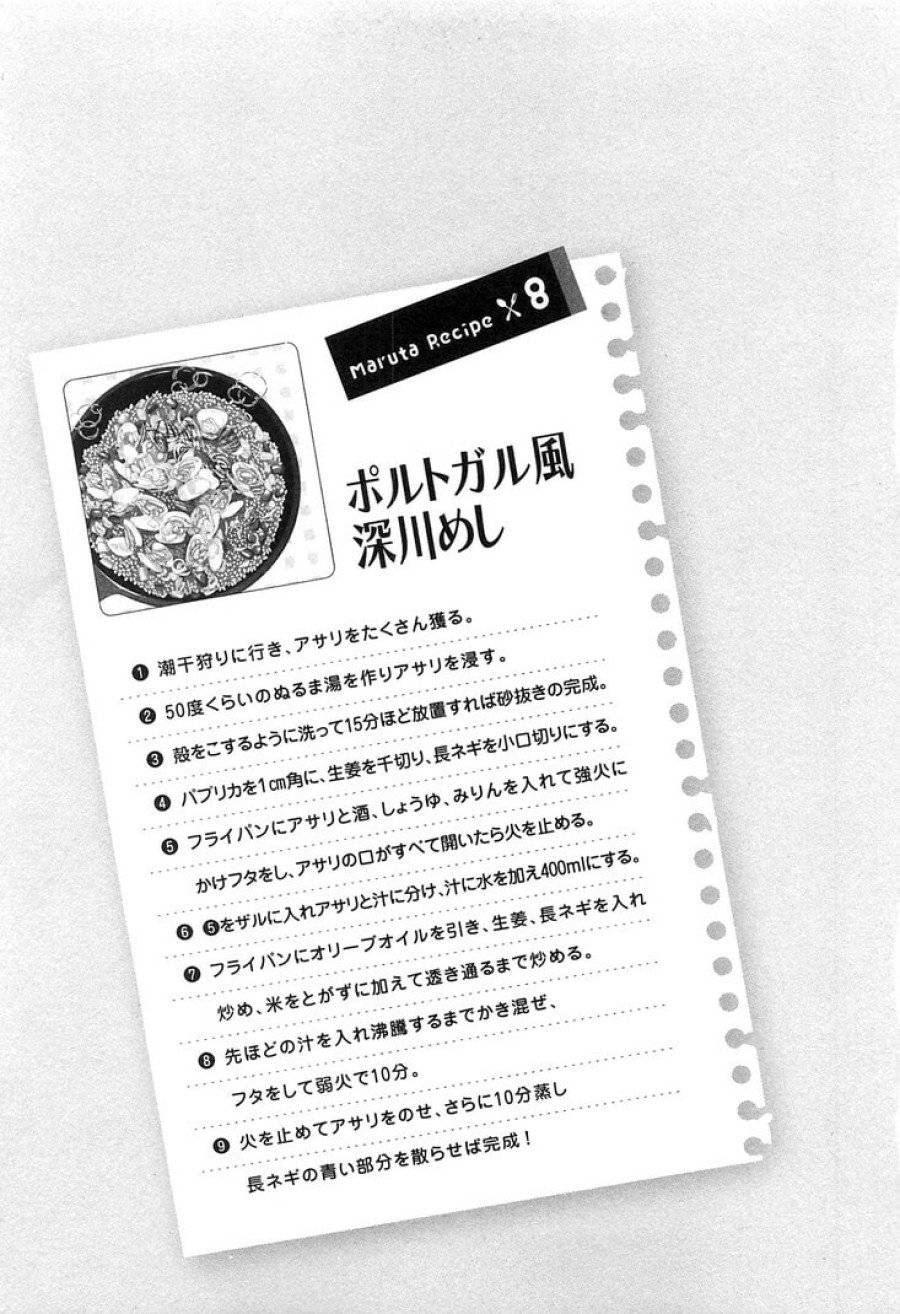 Maruta Recipe 8
ポルトガル風
深川めし
❶ 潮干狩りに行き、アサリをたくさん獲る。
❷ 50度くらいのぬるま湯を作りアサリを浸す。
❸ 殻をこするように洗って15分ほど放置すれば砂抜きの完成。
❹ パプリカを1cm角に、生姜を千切り、長ネギを小口切りにする。
❺ フライパンにアサリと酒、しょうゆ、みりんを入れて強火に
かけフタをし、アサリの口がすべて開いたら火を止める。
❻ ❺をザルに入れアサリと汁に分け、汁に水を加え400mlにする。
❼ フライパンにオリーブオイルを引き、生姜、長ネギを入れ
炒め、米をとがずに加えて透き通るまで炒める。
❽ 先ほどの汁を入れ沸騰するまでかき混ぜ、
フタをして弱火で10分。
❾ 火を止めてアサリをのせ、さらに10分蒸し
長ネギの青い部分を散らせば完成！